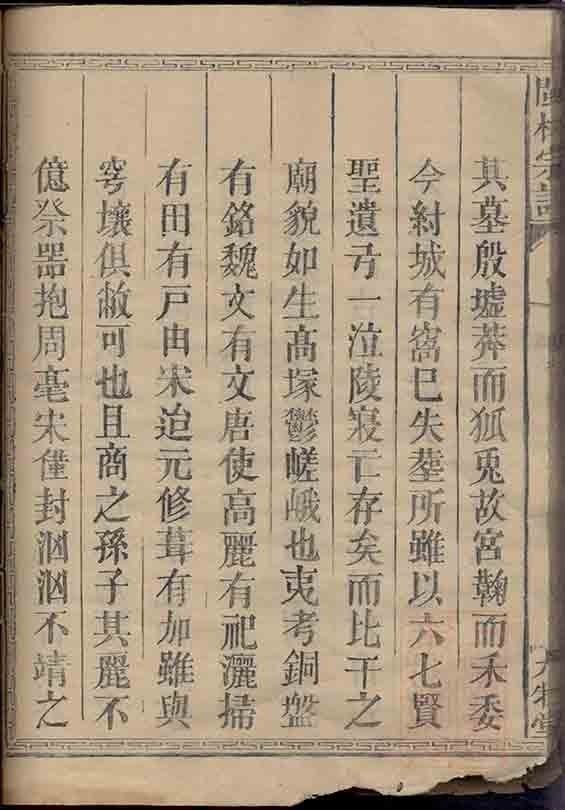 其墓殷墟莽而狐兎故宮鞠而禾委
今紂城有窩巳失塟所雖以六七賢
聖遺弓一泣陵寢亡存矣而比干之
廟貌如生高塚鬱嵯峨也夷考銅盤
有銘魏文有文唐使高麗有祀灑掃
有田有戸由宋迨元修葺有加雖與
穹壤俱敝可也且商之孫子其麗不
億祭噐抱周亳宋僅封汹汹不靖之